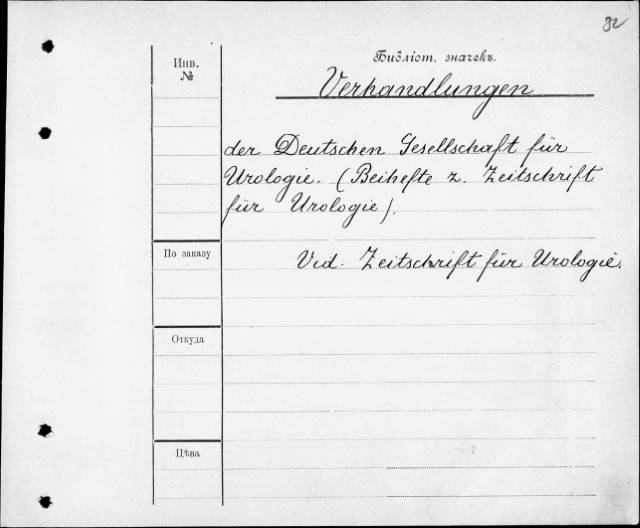 82
Инв.
№
Библіот. значекъ.
Verhandlungen
der Deutschen Gesellschaft für
Urologie. (Beihefte z. Zeitschrift
für Urologie).
По заказу
Vid. Zeitschrift für Urologie.
Откуда
Цѣна